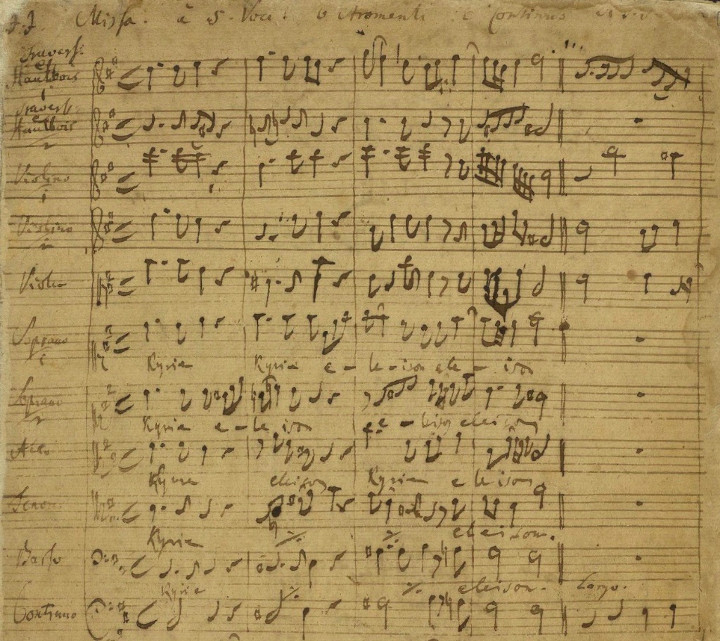 J.J. Missa. à 5. Voci. 6 Stromenti e Continuo
Traversi
et
Hautbois
1
Travers.
Hautbois
2
Violino
1
Violino
2
Viola
Soprano
1
Kyrie Kyrie e - le - ison ele - ison
Soprano
2
Kyrie e - le - ison e - leison eleison
Alto
Kyrie eleison Kyrie e leison
Tenor
Kyrie eleison.
Basso
Kyrie eleison. Largo.
Continuo